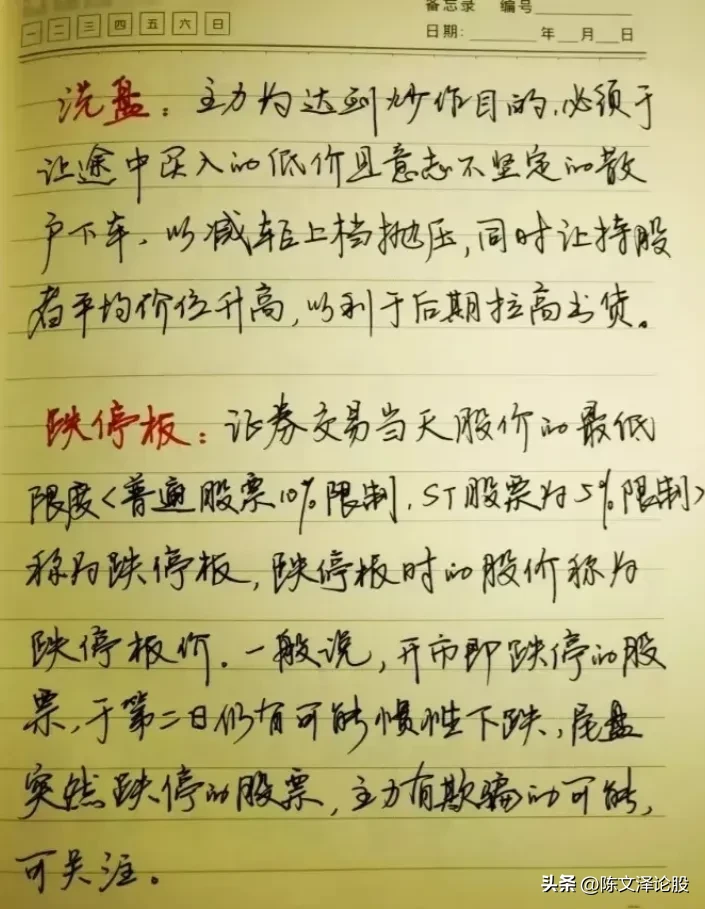 备忘录 编号
一 二 三 四 五 六 日
日期: 年 月 日
洗盘：主力为达到炒作目的,必须于
让途中买入的低价且意志不坚定的散
户下车、以减轻上档抛压,同时让持股
者平均价位升高,以利于后期拉高出货。
跌停板：证券交易当天股价的最低
限度<普遍股票10%限制,ST股票为5%限制>
称为跌停板,跌停板时的股价称为
跌停板价.一般说,开市即跌停的股
票,于第二日仍有可能惯性下跌,尾盘
突然跌停的股票,主力有欺骗的可能,
可关注。
头条 @陈文泽论股